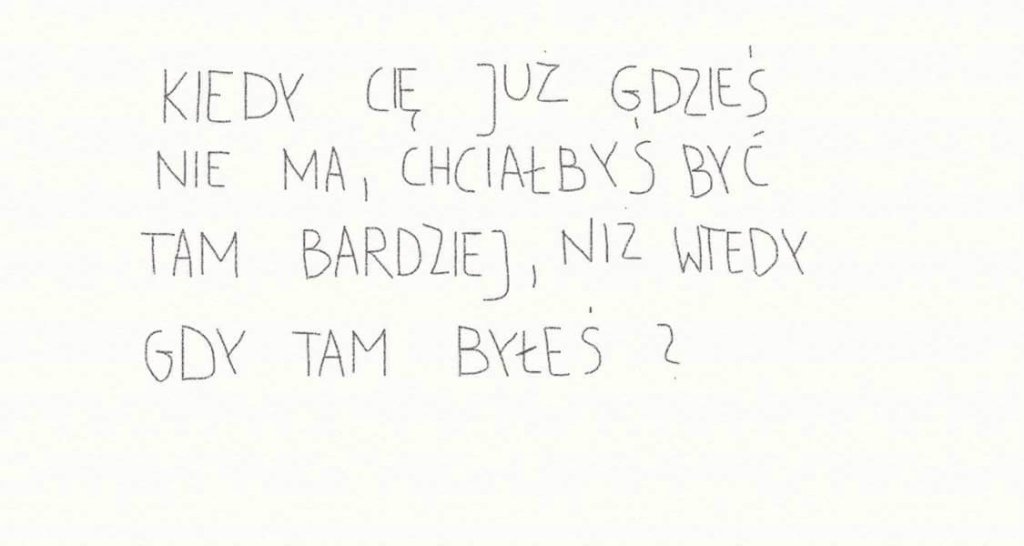 KIEDY CIĘ JUŻ GDZIEŚ
NIE MA, CHCIAŁBYŚ BYĆ
TAM BARDZIEJ, NIŻ WTEDY
GDY TAM BYŁEŚ ?